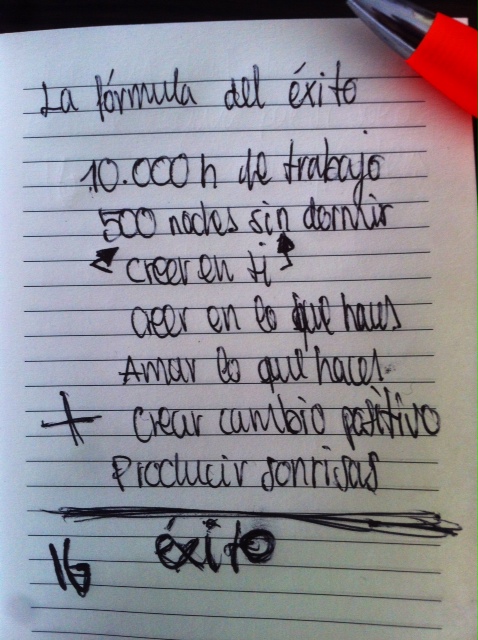 La fórmula del éxito
10.000 h de trabajo
500 noches sin dormir
creer en ti
creer en lo que haces
Amar lo que haces
+ crear cambio positivo
Producir sonrisas
éxito
16